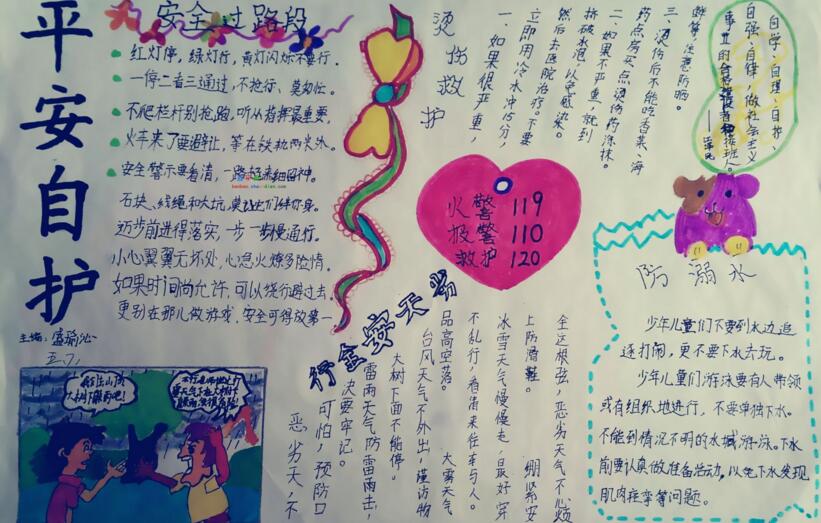 平安自护
安全过路段
红灯停，绿灯行，黄灯闪烁不要行。
一停二看三通过，不抢行、莫匆忙。
不爬栏杆别抢跑，听从指挥最重要，
火车来了要避让，等在铁轨两头外。
安全警示要看清，
石块、线绳和大坑，莫让它们绊你身。
迈步前进得落实，一步一步慢通行。
小心翼翼无坏处，心急火燎多险情。
如果时间尚允许，可以绕行避过去。
更别在那儿做游戏，安全可得放第一
主编：盛瑜沁
五.7)
烫伤救护
一、如果很严重，
立即用冷水冲15分，
然后去医院治疗。不要
挤破水泡，以免感染。
二、如果不严重，就到
药店买点烫伤药涂抹。
三、烫伤后不能吃香菜、海
鲜等，注意防晒。
自学、自理、自护、
自强、自律，做社会主义
事业的合格建设者和接班人。
——江泽民
火警 119
报警 110
救护 120
防溺水
少年儿童们不要到水边追
逐打闹，更不要下水去玩。
少年儿童们游泳要有人带领
或有组织地进行，不要单独下水。
不能到情况不明的水域游泳。下水
前要认真做准备活动，以免下水发现
肌肉痉挛等问题。
恶劣天安全行
恶劣天，不
可怕，预防口
决要牢记。
雷雨天气防雷雨击，
大树下面不能停。
台风天气不外出，谨防物
品高空落。 大雾天气
不乱行，看清来往车与人。
冰雪天气慢慢走，最好穿
上防滑鞋。 绷紧安
全这根弦，恶劣天气不心烦